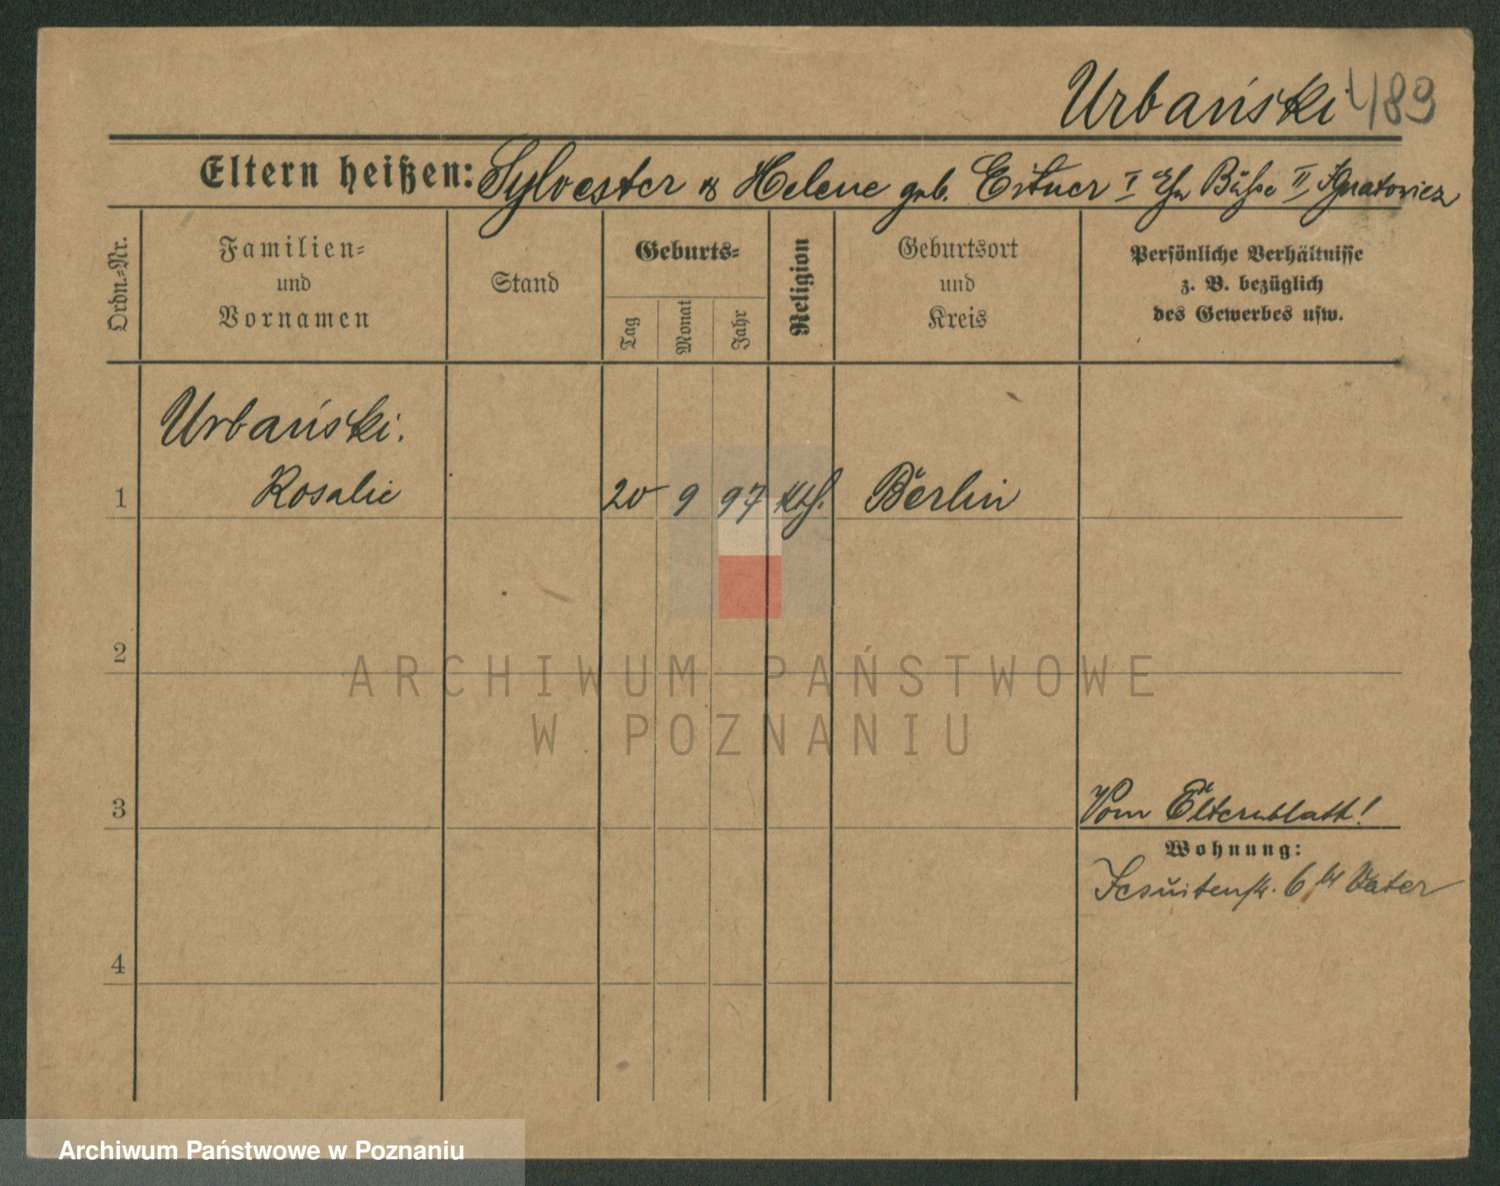 Urbański 489
Eltern heißen: Sylvester & Helene geb. Eitner I Büße II Ignatowicz
Ordn.=Nr.
Familien=
und
Vornamen
Stand
Geburts=
Tag
Monat
Jahr
Religion
Geburtsort
und
Kreis
Persönliche Verhältnisse
z. B. bezüglich
des Gewerbes usw.
Urbański.
1 Rosalie 20 9 97 kth. Berlin
2
ARCHIWUM PAŃSTWOWE
W POZNANIU
3
Vom Elternblatt!
Wohnung:
Jesuitenstr. 6 Vater
4
Archiwum Państwowe w Poznaniu